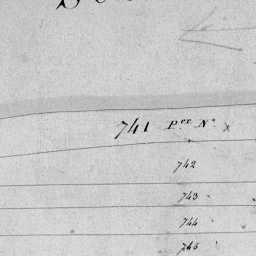 741 Pce N°
742
743
744
745